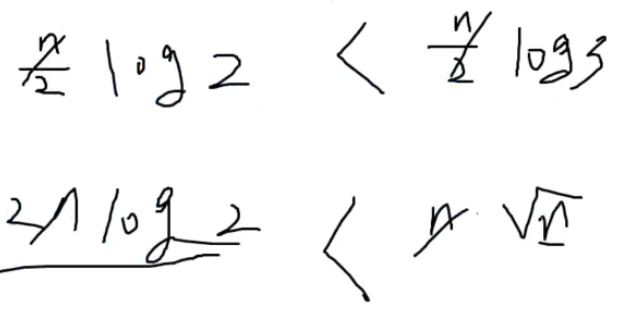 n/2 log 2 < n/2 log 3
2n log 2 < n · √n